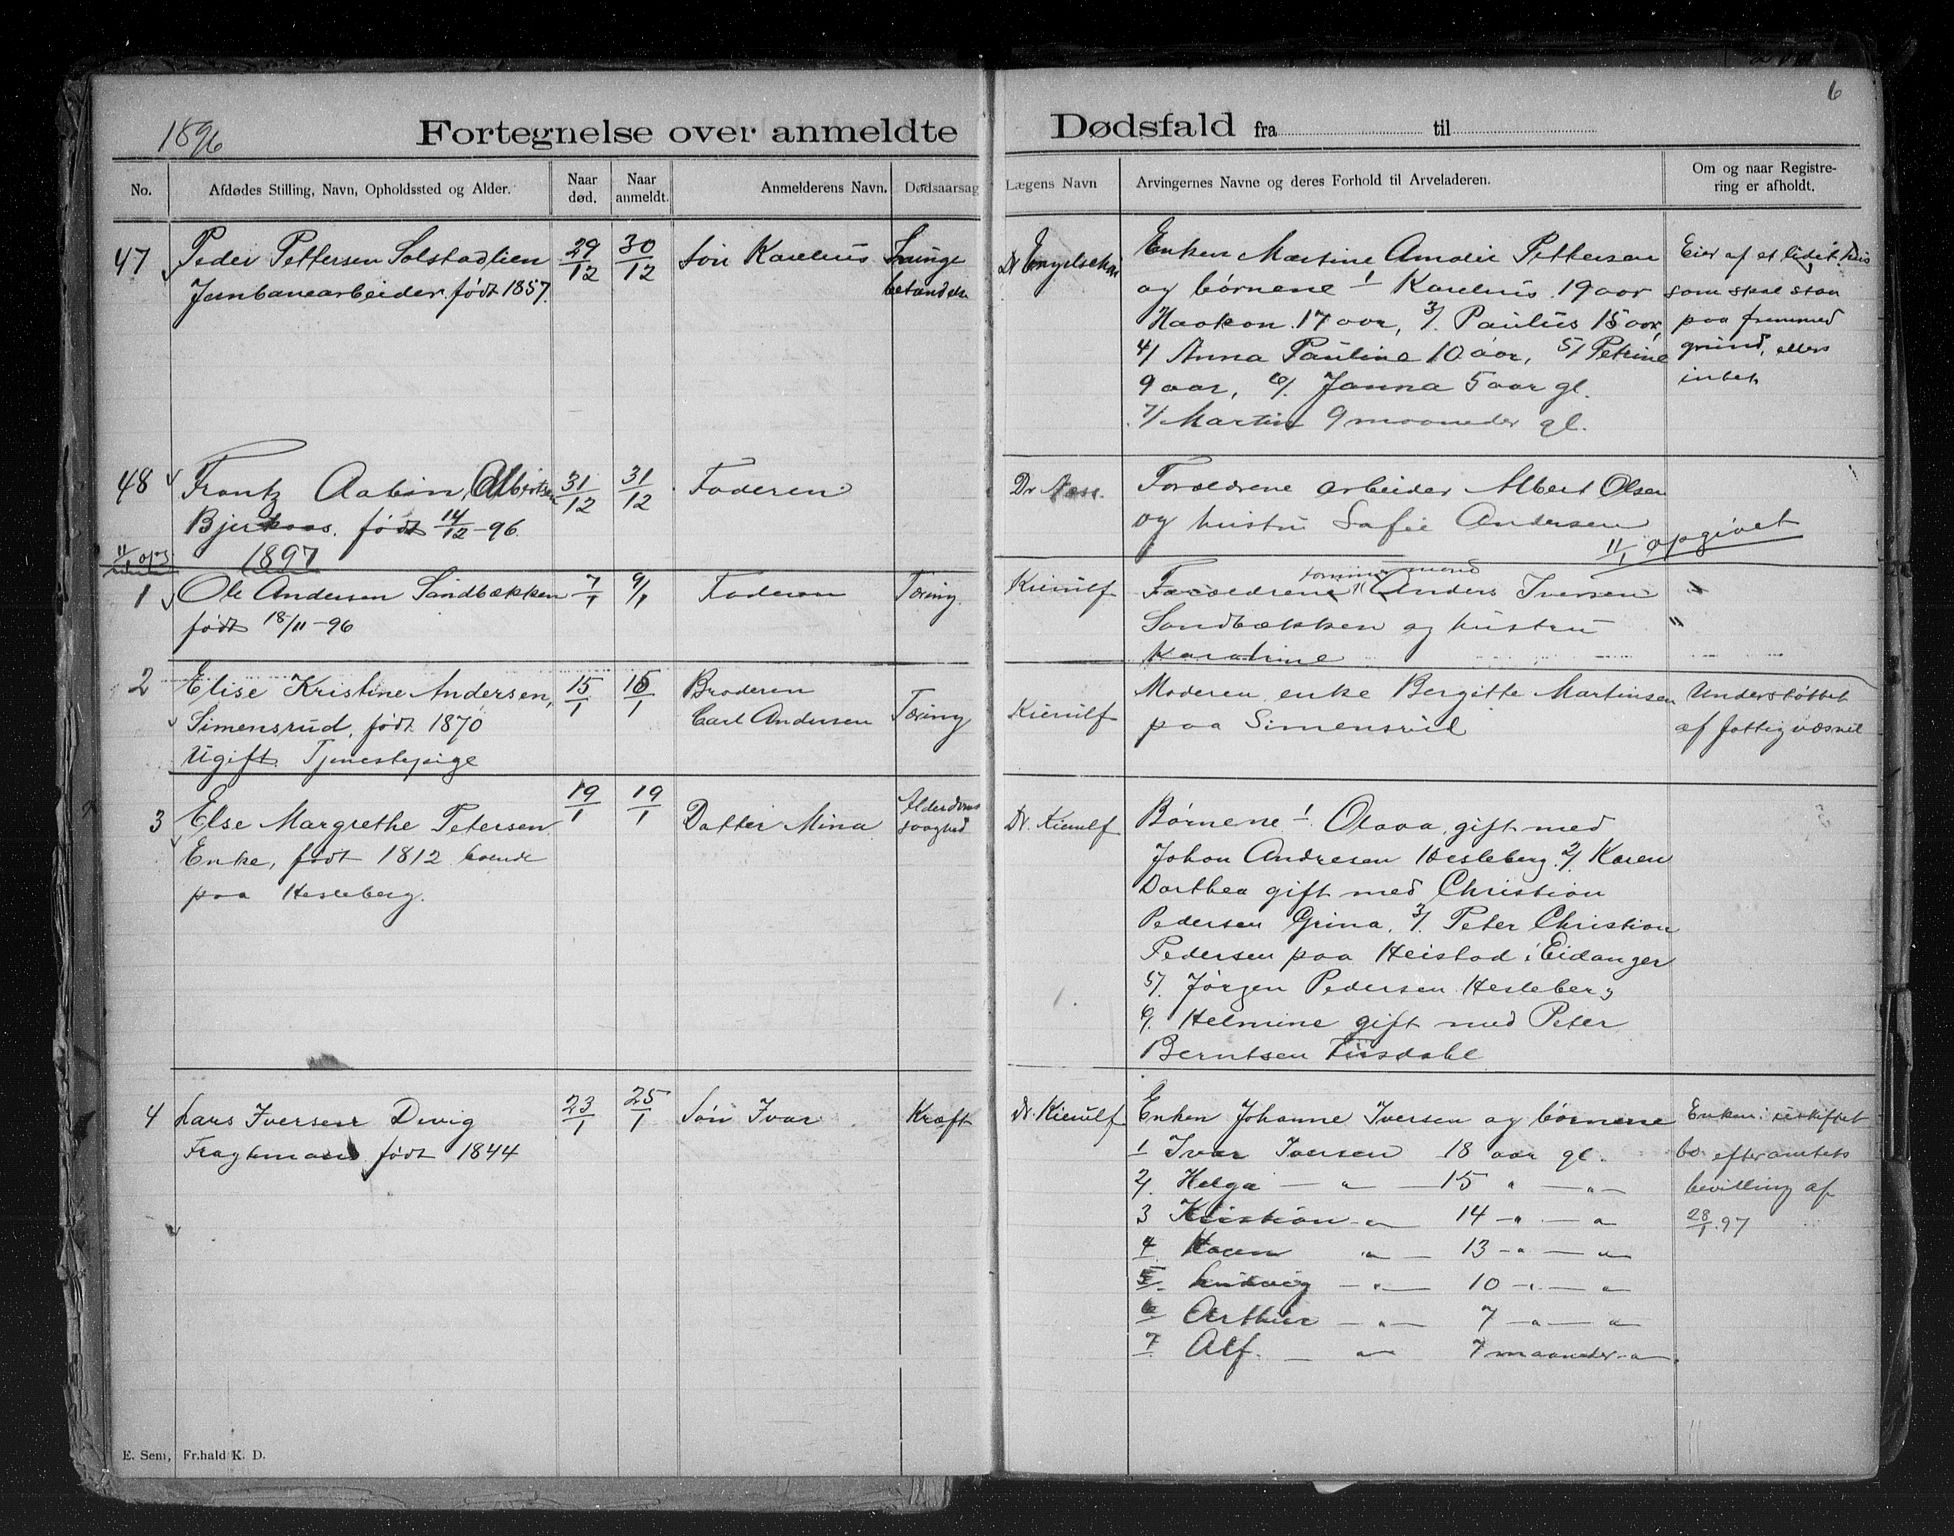 6
1896
Fortegnelse over anmeldte Dødsfald fra til
No.
Afdødes Stilling, Navn, Opholdssted og Alder.
Naar død.
Naar anmeldt.
Anmelderens Navn.
Dødsaarsag
Lægens Navn
Arvingernes Navne og deres Forhold til Arveladeren.
Om og naar Registre-
ring er afholdt.
47
Peder Pettersen Solstadlien
Jernbanearbeider født 1857.
29/12
30/12
Søn Karelius
Lunge
betændelse
Dr
Enken Martine Amalie Pettersen
og børnene 1/ Karelius 19 aar
Haakon 17 aar, 3/. Paulus 15 aar,
4/ Anna Pauline 10 aar, 5/ Petrine
9 aar, 6/. Janna 5 aar gl.
7/ Martin 9 maaneder gl.
Eier af et lidet hus
som skal staa
paa fremmed
grund, ellers
intet
48
Frantz Albertsen
født 14/12-96
31/12
31/12
Faderen
Dr Næss.
Forældrene arbeider Albert Olsen
og hustru Safie Andersen
11/1 opgivet
11/1 op
1897
1
Ole Andersen Sandbækken
født 18/11-96
7/1
9/1
Faderen
Tæring
Kierulf
Forældrene tømmermand Anders Iversen
Sandbækken og hustru
Karoline
"
"
2
Elise Kristine Andersen,
Simensrud, født 1870
Ugift. Tjenestepige
15/1
16/1
Broderen
Carl Andersen
Tæring
Kierulf
Moderen enke Bergitte Martinsen
paa Simensrud
Understøttet
af fattigvæsnet
3
Else Margrethe Petersen
Enke, født 1812 boende
paa Hesleberg.
19/1
19/1
Datter Mina
Alderdoms
svaghed
Dr. Kierulf
Børnene 1/ Olava, gift med
Johan Andresen Hesleberg. 2/ Karen
Dorthea gift med Christian
Pedersen Grina, 3/. Peter Christian
Pedersen paa Heistad i Eidanger
5/. Jørgen Pedersen Hesleberg
6. Helmine gift med Peter
Berntsen
4
Lars Iversen Devig
Fragtmand født 1844
23/1
25/1
Søn Ivar
Kræft
Dr. Kierulf
Enken Johanne Iversen og børnene
1 Ivar Iversen 18 aar gl.
2/. Helga — " — 15 " — " —
3 Kristian — " — 14 — " — "
4 Karen " — 13 — " — "
5. Ludvig — " — 10 — " — "
6 Arthur — " — 7 — " — "
7. Alf. — " 7 maaneder — " —
Enken i uskiftet
bo efter amtets
bevilling af
28/1. 97
E. Sem, Fr.hald K. D.